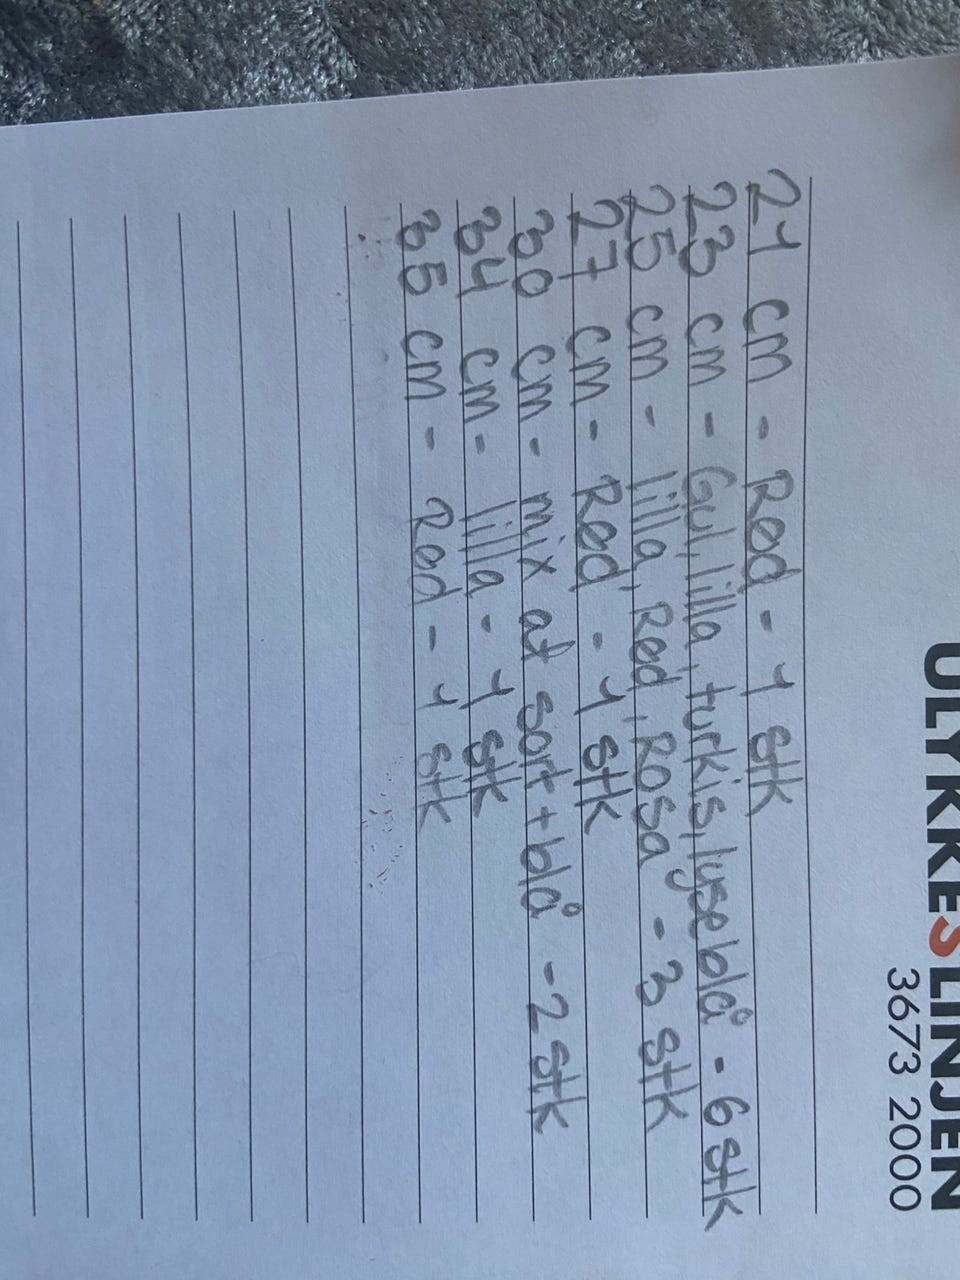 ULYKKESLINJEN
3673 2000
21 cm - Rød - 1 stk
23 cm - Gul, lilla, turkis, lyseblå - 6 stk
25 cm - lilla, Rød, Rosa - 3 stk
27 cm - Rød - 1 stk
30 cm - mix af sort + blå - 2 stk
34 cm - lilla - 1 stk
35 cm - Rød - 1 stk